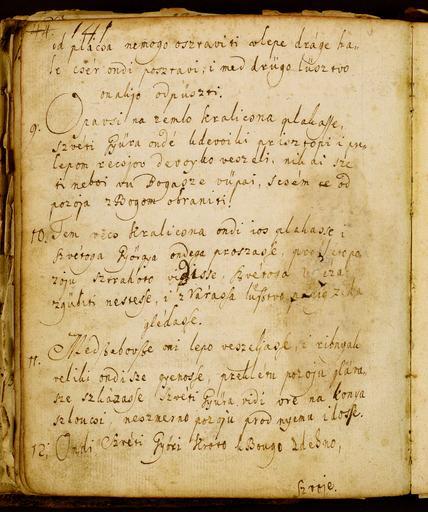 od placsa nemogo osztaviti vlepe dráge ha-
le csér ondi posztavi; i med drügo lüsztvo
onakjo odpüszti.
9. Opavsi na zemlo kralicona plakasse,
Szvéti Gyüra onde kdevoiki prisztópi i v-
lepom recsjov devojko veszeli, nikdi sze
ti neboi vu Bogasze vüpai, scsém te od
pozoja z Bogom obraniti!
10. Tem vecs kralicona ondi ios plakasse i
Szvétoga Györgya ondega proszasse,
zoju sztrahoto vidisse, Szvétoga
zgubiti nestesse, i z Varassa lüsztvo
gledasse.
11. Med szebovsse oni lepo veszeljasse, i ribnyak
veliki ondi sze gyenosse, prekletu pozoju glava-
sze szkazasse Szveti Gyüra vidi vre na konya
szloucsi, neozmerno pozoju prod nyemu idosse.
12. Ondi Szvéti Györi kroto k Bougo zdehno,
Szvoje.